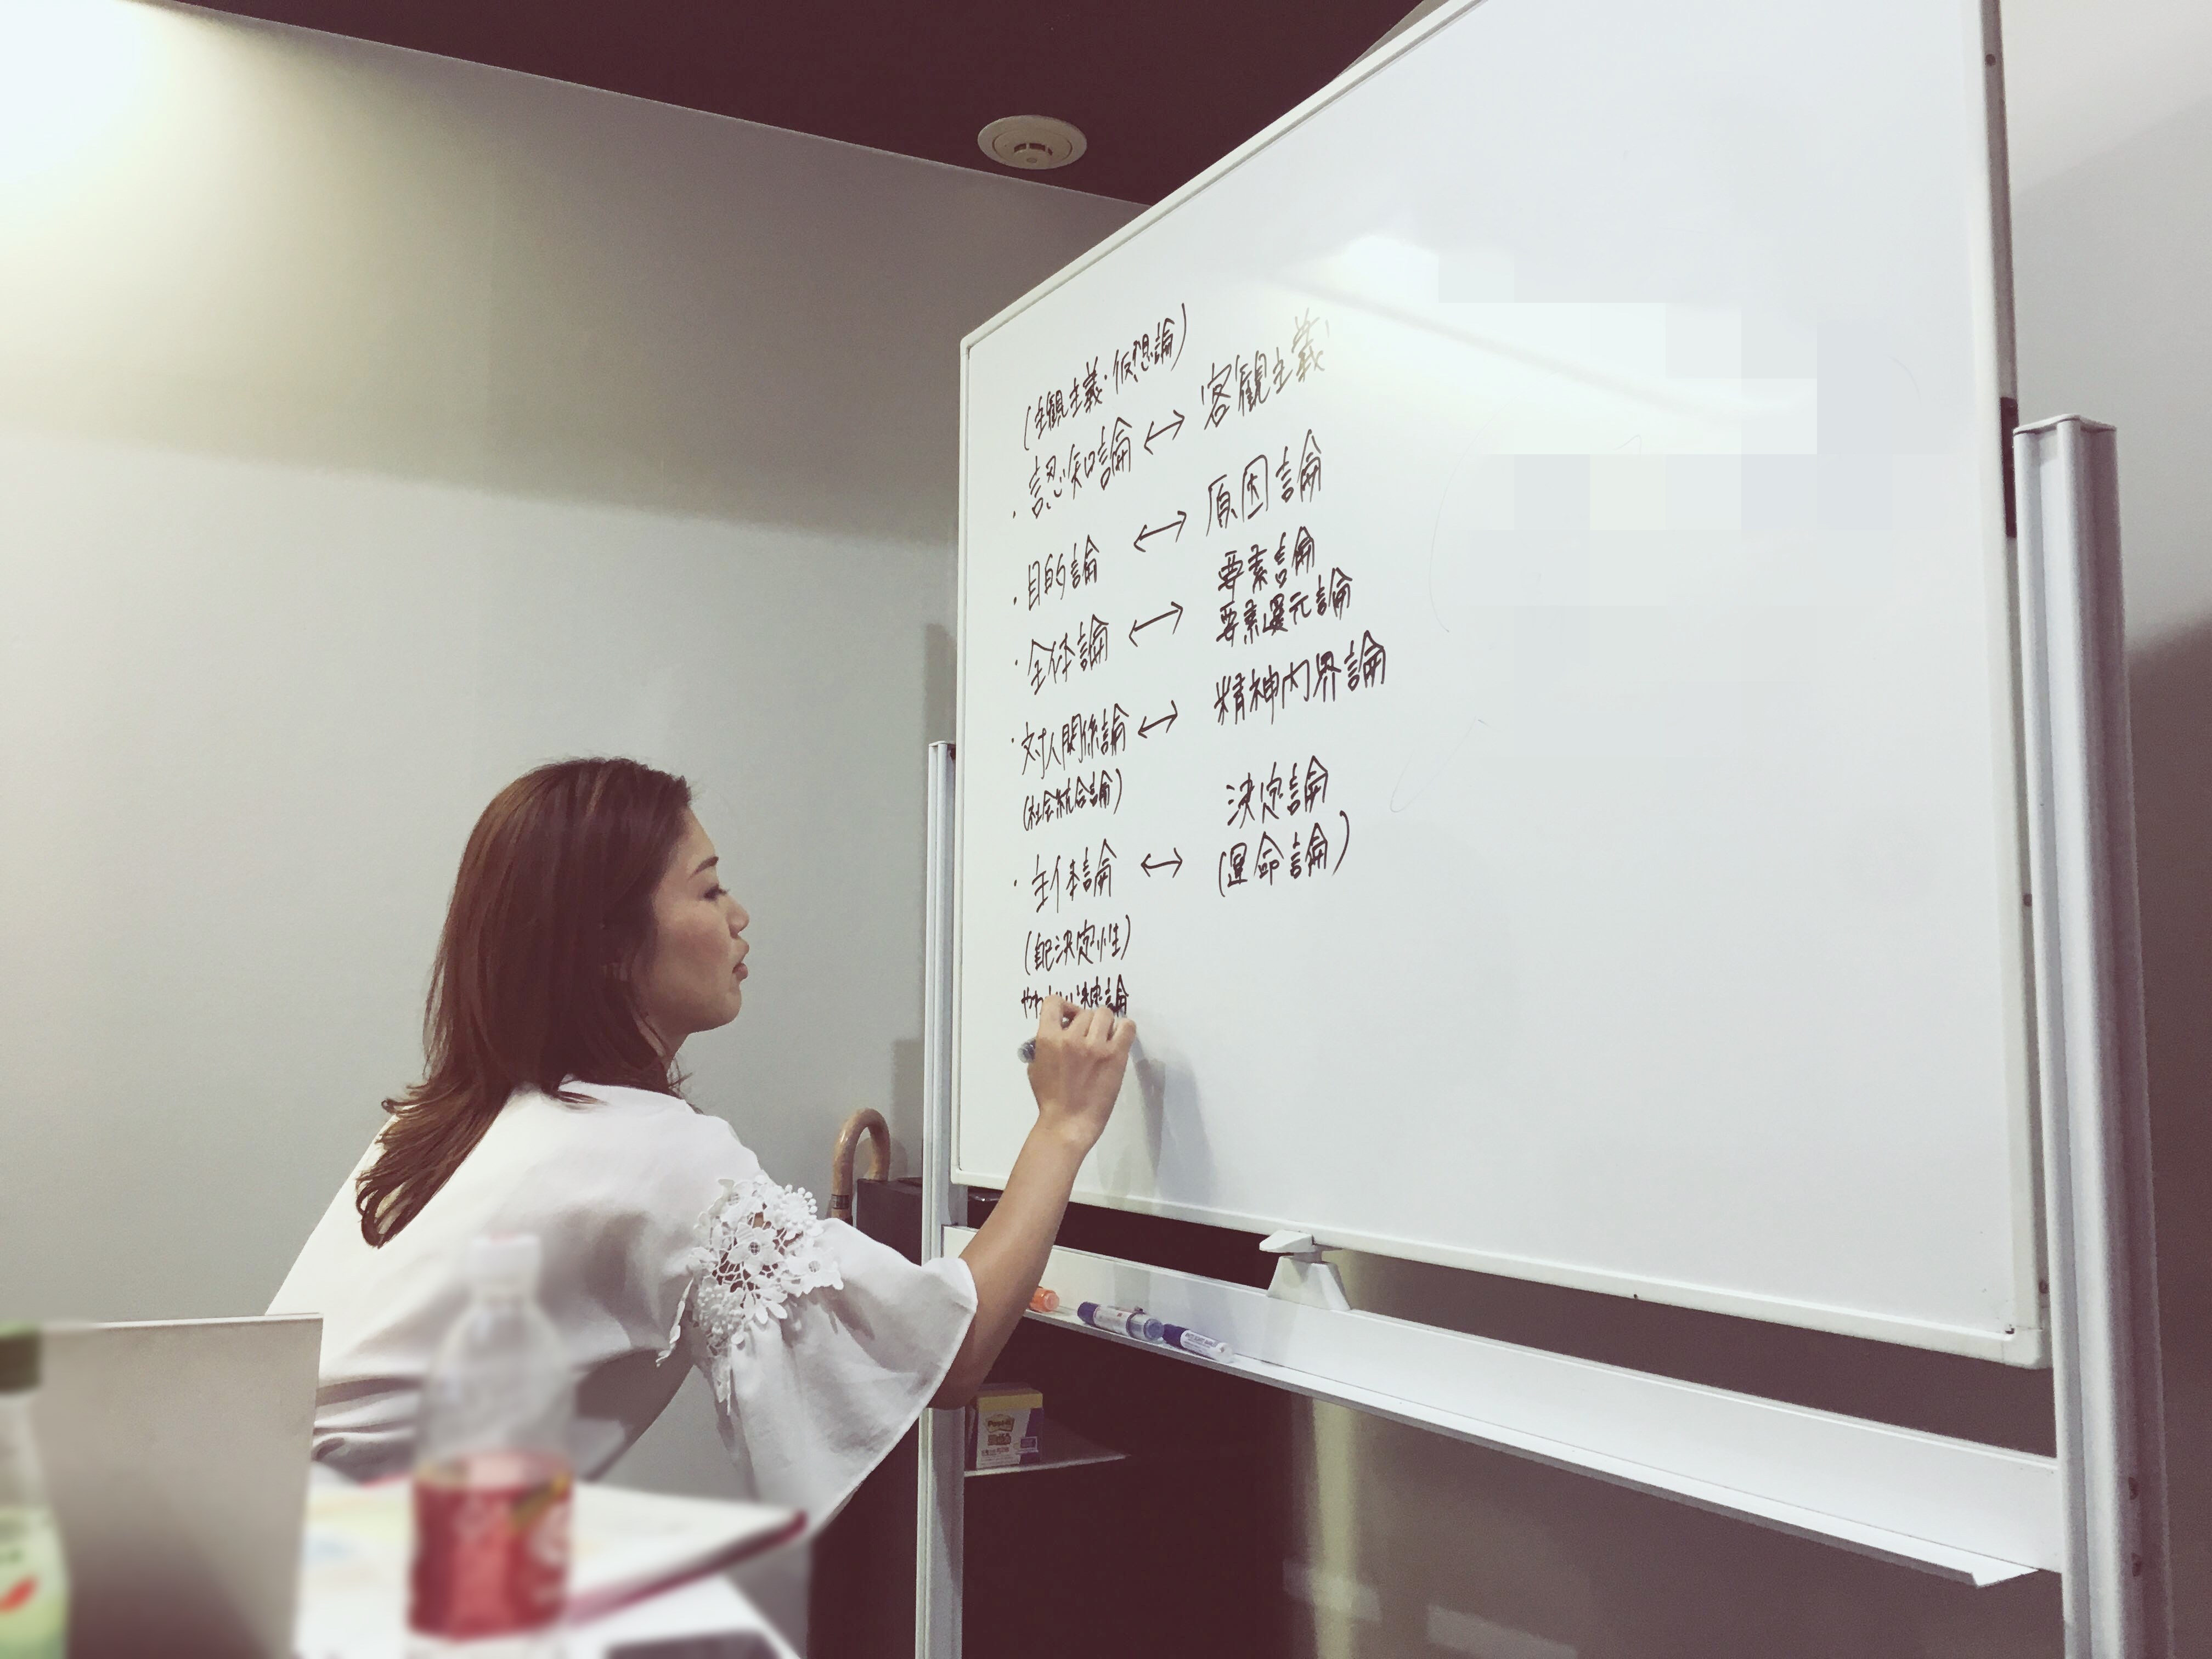 (主観主義・仮想論)
・認知論 ↔ 客観主義
・目的論 ↔ 原因論
・全体論 ↔ 要素論
要素還元論
・対人関係論 ↔ 精神内界論
(社会統合論)
・主体論 ↔ 決定論
(運命論)
(自己決定性)
やわ 決定論
Post-it